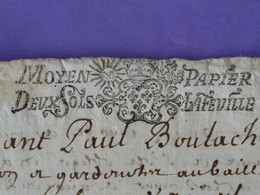 MOYEN PAPIER
DEUX SOLS LA FEUILLE
ant Paul Boulach
on a gardoncher aubaill